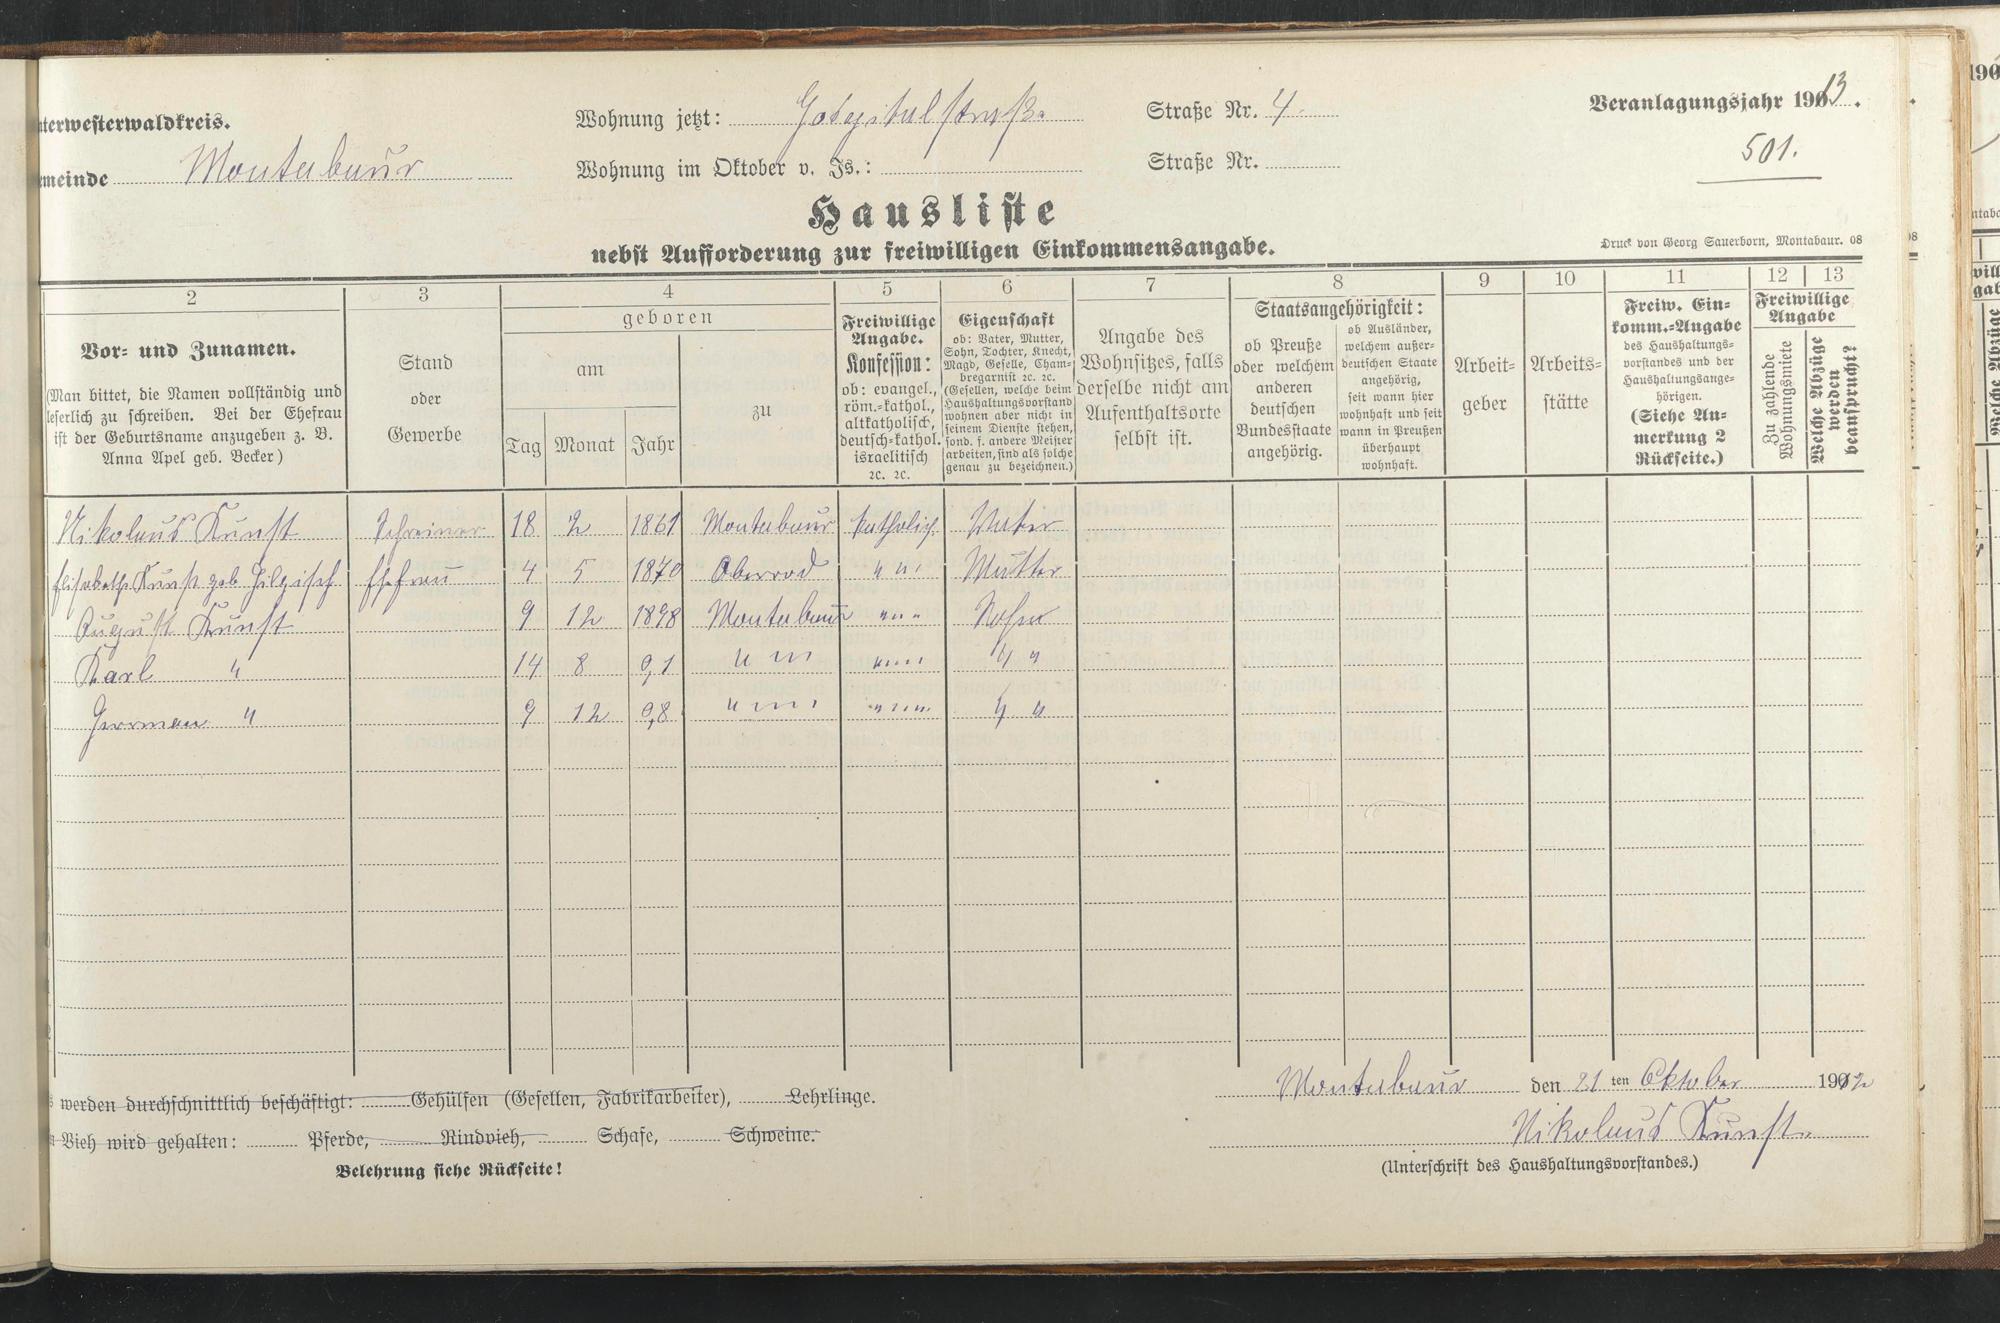 nterwesterwaldkreis.
Wohnung jetzt: Hospitalstraße Straße Nr. 4
Veranlagungsjahr 1913.
emeinde Montabaur
Wohnung im Oktober v. Js.: Straße Nr.
501.
Hausliste
nebst Aufforderung zur freiwilligen Einkommensangabe.
Druck von Georg Sauerborn, Montabaur. 08
2 3 4 5 6 7 8 9 10 11 12 13
Vor- und Zunamen.
(Man bittet, die Namen vollständig und
leserlich zu schreiben. Bei der Ehefrau
ist der Geburtsname anzugeben z. B.
Anna Apel geb. Becker)
Stand
oder
Gewerbe
geboren
am
Tag Monat Jahr
zu
Freiwillige
Angabe.
Konfession:
ob: evangel.,
röm.-kathol.,
altkatholisch,
deutsch-kathol.
israelitisch
2c. 2c.
Eigenschaft
ob: Vater, Mutter,
Sohn, Tochter, Knecht,
Magd, Geselle, Cham-
bregarnist 2c. 2c.
(Gesellen, welche beim
Haushaltungsvorstand
wohnen aber nicht in
seinem Dienste stehen,
sond. f. andere Meister
arbeiten, sind als solche
genau zu bezeichnen.)
Angabe des
Wohnsitzes, falls
derselbe nicht am
Aufenthaltsorte
selbst ist.
Staatsangehörigkeit:
ob Preuße
oder welchem
anderen
deutschen
Bundesstaate
angehörig.
ob Ausländer,
welchem außer-
deutschen Staate
angehörig,
seit wann hier
wohnhaft und seit
wann in Preußen
überhaupt
wohnhaft.
Arbeit-
geber
Arbeits-
stätte
Freiw. Ein-
komm.-Angabe
des Haushaltungs-
vorstandes und der
Haushaltungsange-
hörigen.
(Siehe An-
merkung 2
Rückseite.)
Freiwillige
Angabe
Zu zahlende
Wohnungsmiete
Welche Abzüge
werden
beansprucht?
Nikolaus Kunst Schreiner 18 2 1861 Montabaur katholisch. Vater
Elisabeth Kunst geb. Hilpisch Ehefrau 4 5 1870 Oberrod " " ' Mutter
August Kunst 9 12 1898 Montabaur " " " Sohn
Karl " 14 8 0,1 " " ' ' " " ' ' " "
Herman " 9 12 0,8 " " ' ' " " ' ' " "
werden durchschnittlich beschäftigt: Gehülfen (Gesellen, Fabrikarbeiter), Lehrlinge.
Vieh wird gehalten: Pferde, Rindvieh, Schafe, Schweine.
Belehrung siehe Rückseite!
Montabaur den 21 ten Oktober 1912
Nikolaus Kunst
(Unterschrift des Haushaltungsvorstandes.)